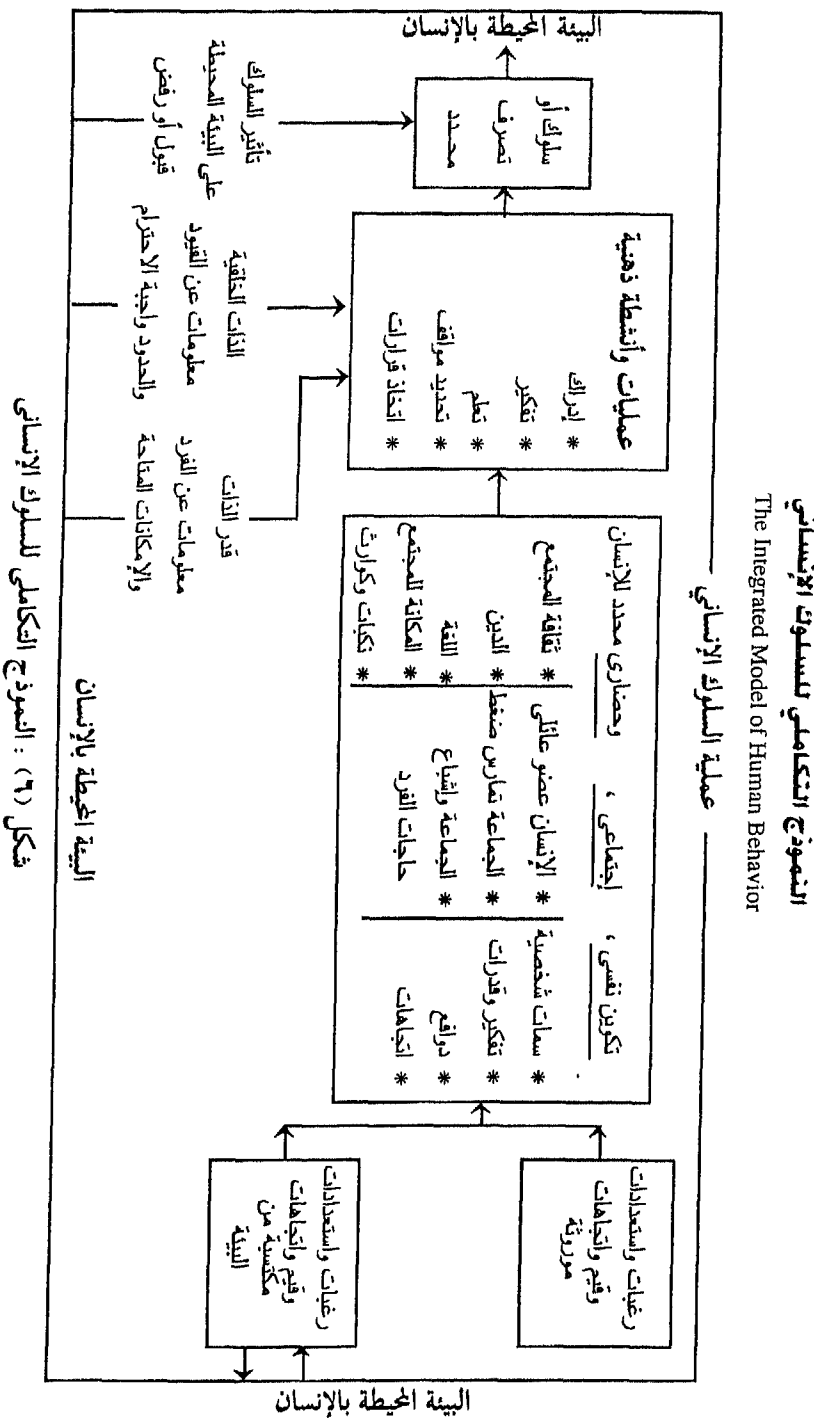 النموذج التكاملي للسلوك الإنساني
The Integrated Model of Human Behavior
عملية السلوك الإنساني
البيئة المحيطة بالإنسان
رغبات واستعدادات
وقيم واتجاهات
موروثة
رغبات واستعدادات
وقيم واتجاهات
مكتسبة من
البيئة
تكوين نفسى ، إجتماعى ، وحضارى محدد للإنسان
* سمات شخصية
* تفكير وقدرات
* دوافع
* اتجاهات
* الإنسان عضو عائلى
* الجماعة تمارس ضغط
* الجماعة وإشباع
حاجات الفرد
* ثقافة المجتمع
* الدين
* اللغة
* المكانة للمجتمع
* نكبات وكوارث
عمليات وأنشطة ذهنية
* إدراك
* تفكير
* تعلم
* تحديد مواقف
* اتخاذ قرارات
سلوك أو
تصرف
محدد
البيئة المحيطة بالإنسان
قدر الذات
معلومات عن الفرد
والإمكانات المتاحة
الذات الخلقية
معلومات عن القيود
والحدود واجبة الاحترام
تأثير السلوك
على البيئة المحيطة
قبول أو رفض
البيئة المحيطة بالإنسان
شكل (٦) : النموذج التكاملى للسلوك الإنسانى